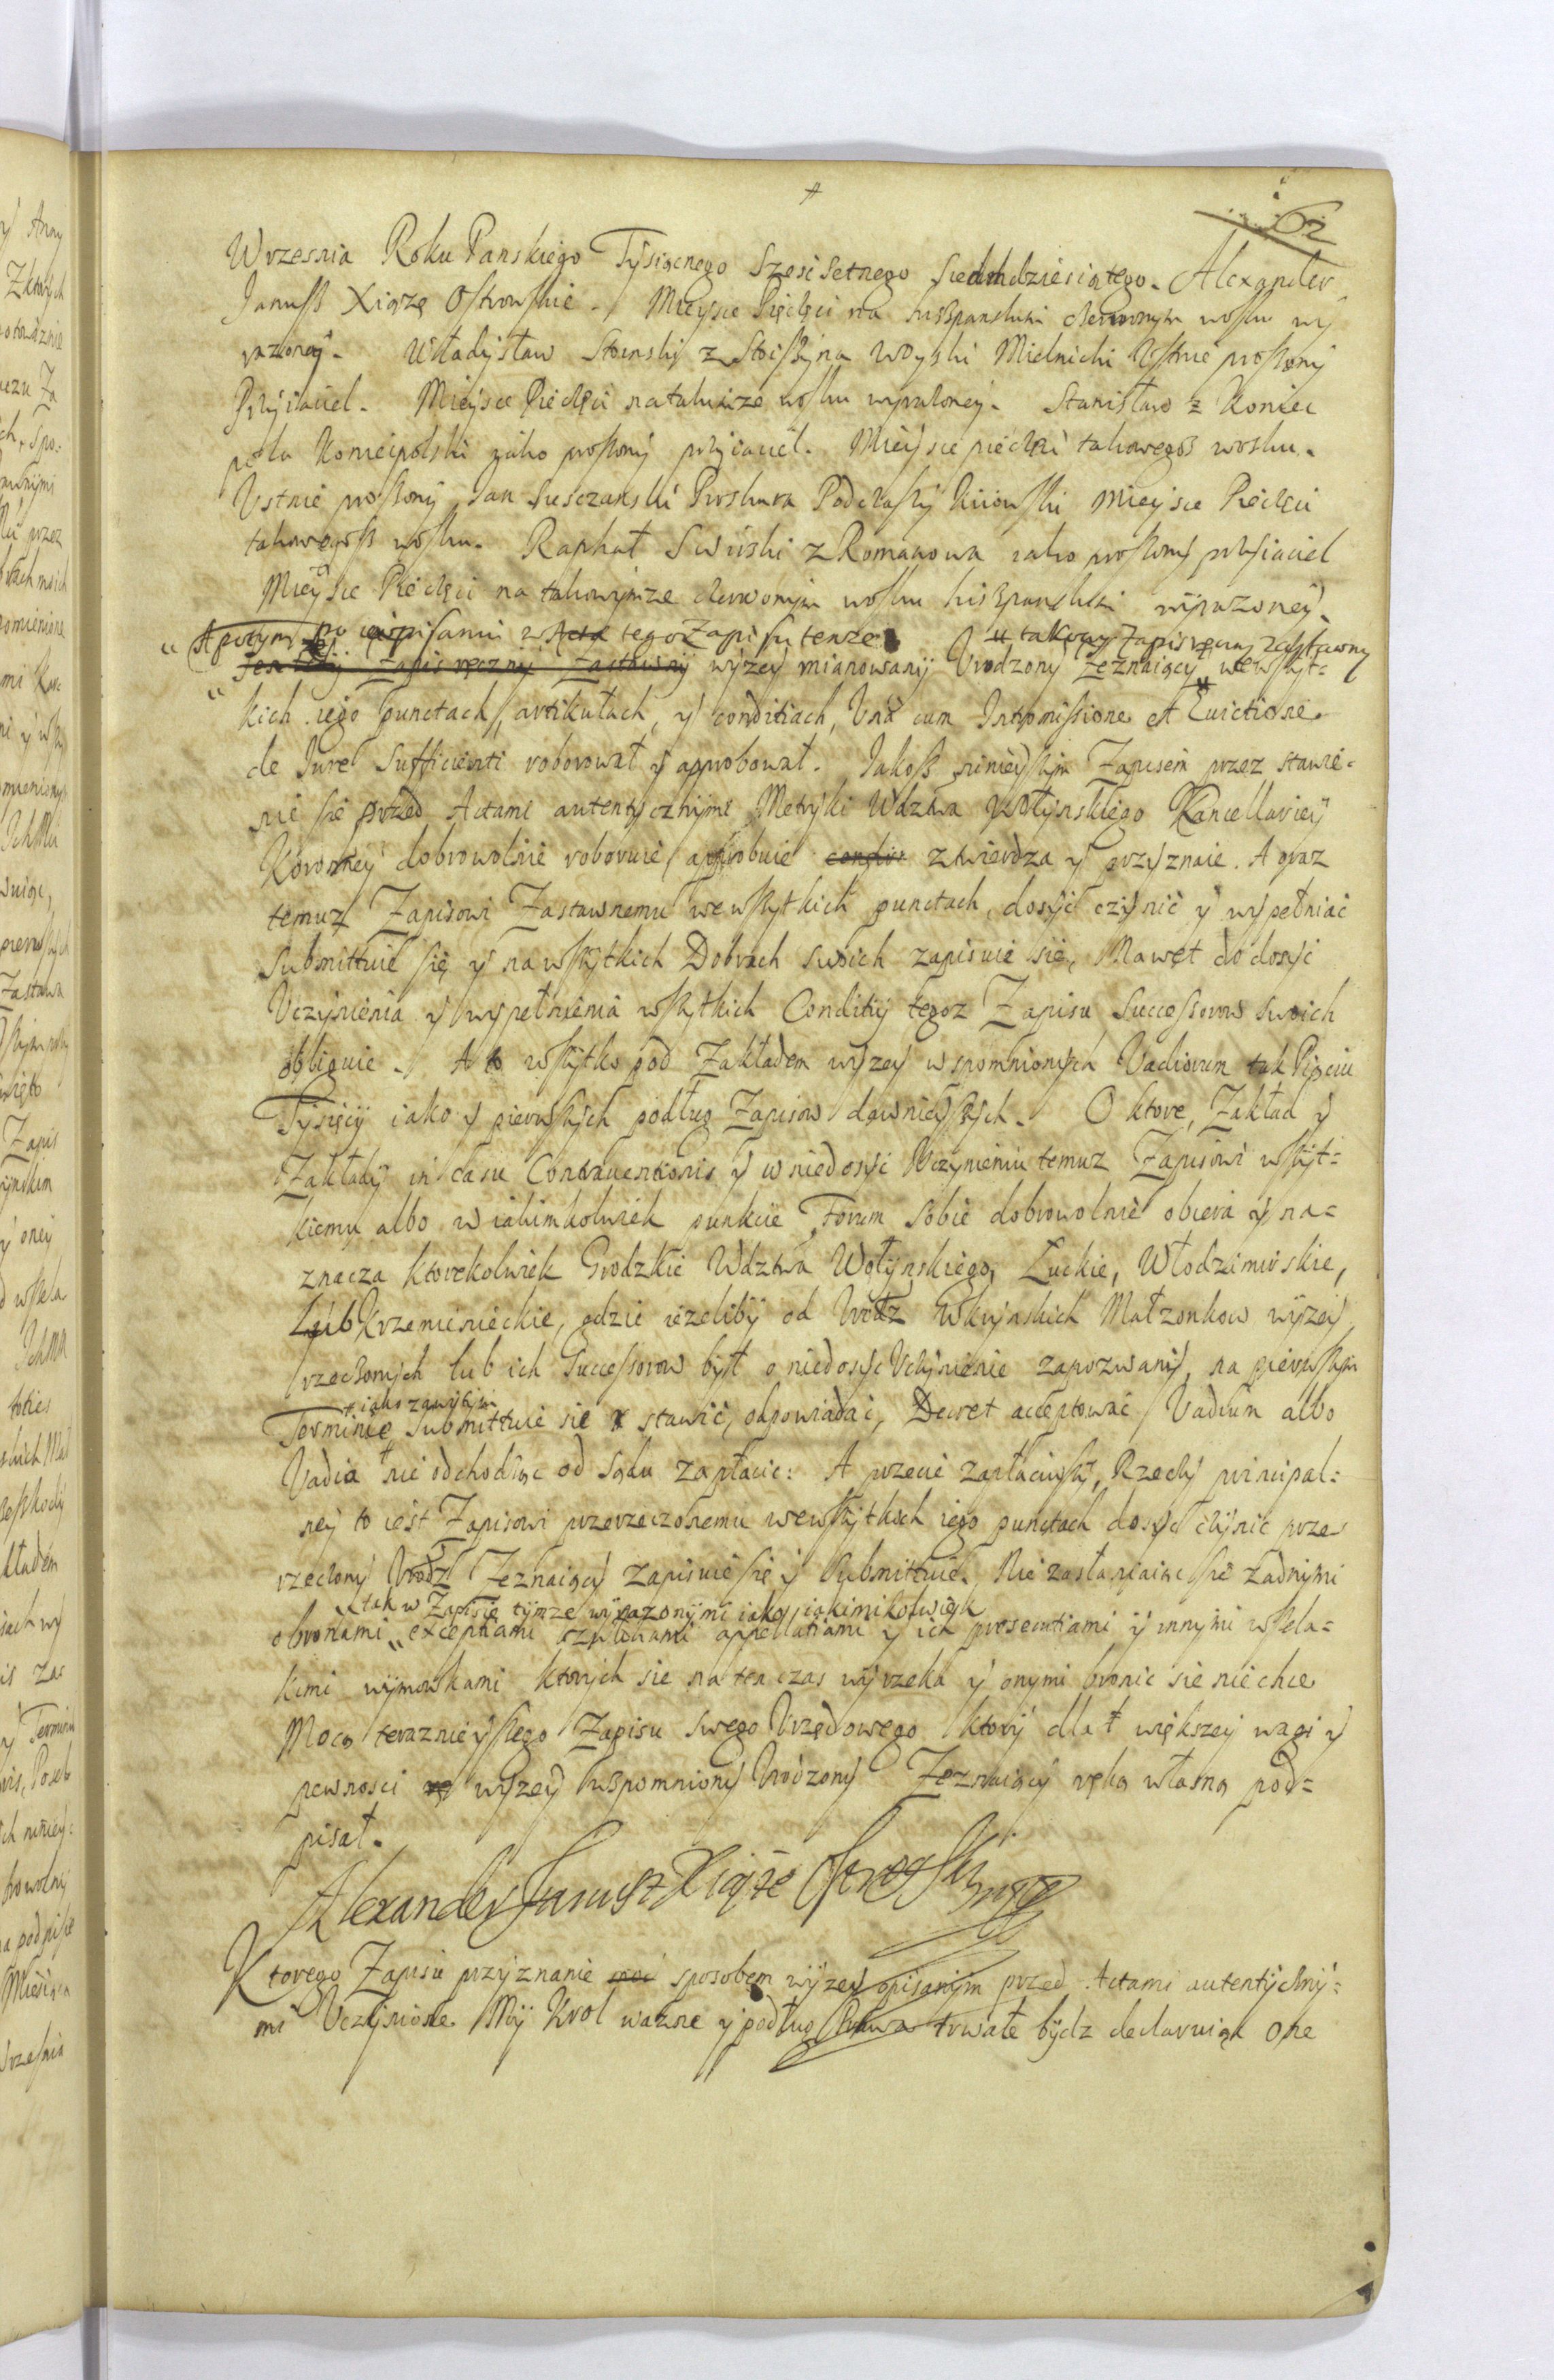 62
Wrzesnia Roku Panskiego Tysiącnego Szescsetnego Siedmdziesiątego. Alexander
Janusz Xiąże Ostrowskie. Mieysce Pięczęci na hiszpanskim czerwonym wosku wy
razoney. Władysław z Woyski Mielnicki Ustnie proszony
Przyiaciel. Mieysce Pieczęci natakimze wosku wyrazoney. Stanisław z Koniec
pola Koniecpolski iako proszony przyiaciel. Mieysce pieczęci takowegosz wosku.
Ustnie proszony Jan Suszczanski Proskura Podczaszy Kiiowski Mieysce Pieczęci
takowegosz wosku. Raphał z Romanowa iako proszony przyiaciel
Mieysce Pieczęci na takowymze czerwonym wosku hiszpanskim wyrazoney.
A potym po wpisaniu w Acta tego Zapisu tenze takowy Zapis ręczny zastawny
Zapis ręczny Zastawny wyzey mianowany Urodzony Zeznaiący wewszyt=
kich iego punctach, artikułach, y conditiach, Una cum Intromissione et Euictione
de Jure Sufficienti roborował y approbował. Jakosz ninieyszym Zapisem przez stawie=
nie sie przed Actami autentycznymi Metryki Wdztwa Wołynskiego Kancellariey
Koronney dobrowolnie roboruie, approbuie ztwierdza y przyznaie. A oraz
temuz Zapisowi Zastawnemu wewszytkich punctach, dosyć czynić y wypełniać
submittuie się y nawszytkich Dobrach swoich zapisuie sie, Nawet do dosyc
Uczynienia y wypełnienia wszytkich Conditiy tegoz Zapisu Successorow swoich
obliguie. A to wszytko pod Zakładem wyzey wspomnionych Vadiorum tak Pięciu
Tysięcy iako y pierwszych podług Zapisow dawnieyszych. O ktore, Zakład y
Zakłady in casu Contrauentionis y w niedosyc Uczynieniu temuz Zapisowi wszyt=
kiemu albo wiakimkolwiek punkcie Forum sobie dobrowolnie obiera y na=
znacza ktorekolwiek Grodzkie Wdztwa Wołynskiego, Łuckie, Włodzimirskie,
Lub Krzemienieckie, gdzie iezeliby od Urodz Małzonkow wyzey
rzeczonych lub ich Successorow był o niedosyc Uczynienie zapozwany, na pierwszym
iako zawitym
Terminie submittuie sie stawić, odpowiadać, Decret acceptować, Vadium albo
Vadia nie odchodząc od Sądu zapłacic: A przecie zapłaciwszy, Rzeczy principal=
ney to iest Zapisowi przerzeczonemu wewszytkich iego punctach dosyc czynic prze
rzeczony Urodz Zeznaiący zapisuie się y submittuie. Nie zasłaniaiąc sie zadnymi
tak w Zapisie tymze wyrazonymi iako iakimikolwiek
obronami exceptiami appellatiami y ich prosecutiami y innymi wszela=
kimi wymowkami ktorych sie na ten czas wyrzeka y onymi bronic sie niechce
Mocą teraznieyszego Zapisu swego Urzędowego ktory dla większey wagi y
pewnosci wyzey wspomniony Urodzony Zeznaiący ręką własną pod=
pisał.
Alexander Janusz Xiąże Ostrogski mp
Ktorego Zapisu przyznanie sposobem wyzey opisanym przed Actami autentyczny=
mi Uczynione My Krol wazne y podług Prawa trwałe bydz declaruiąc One